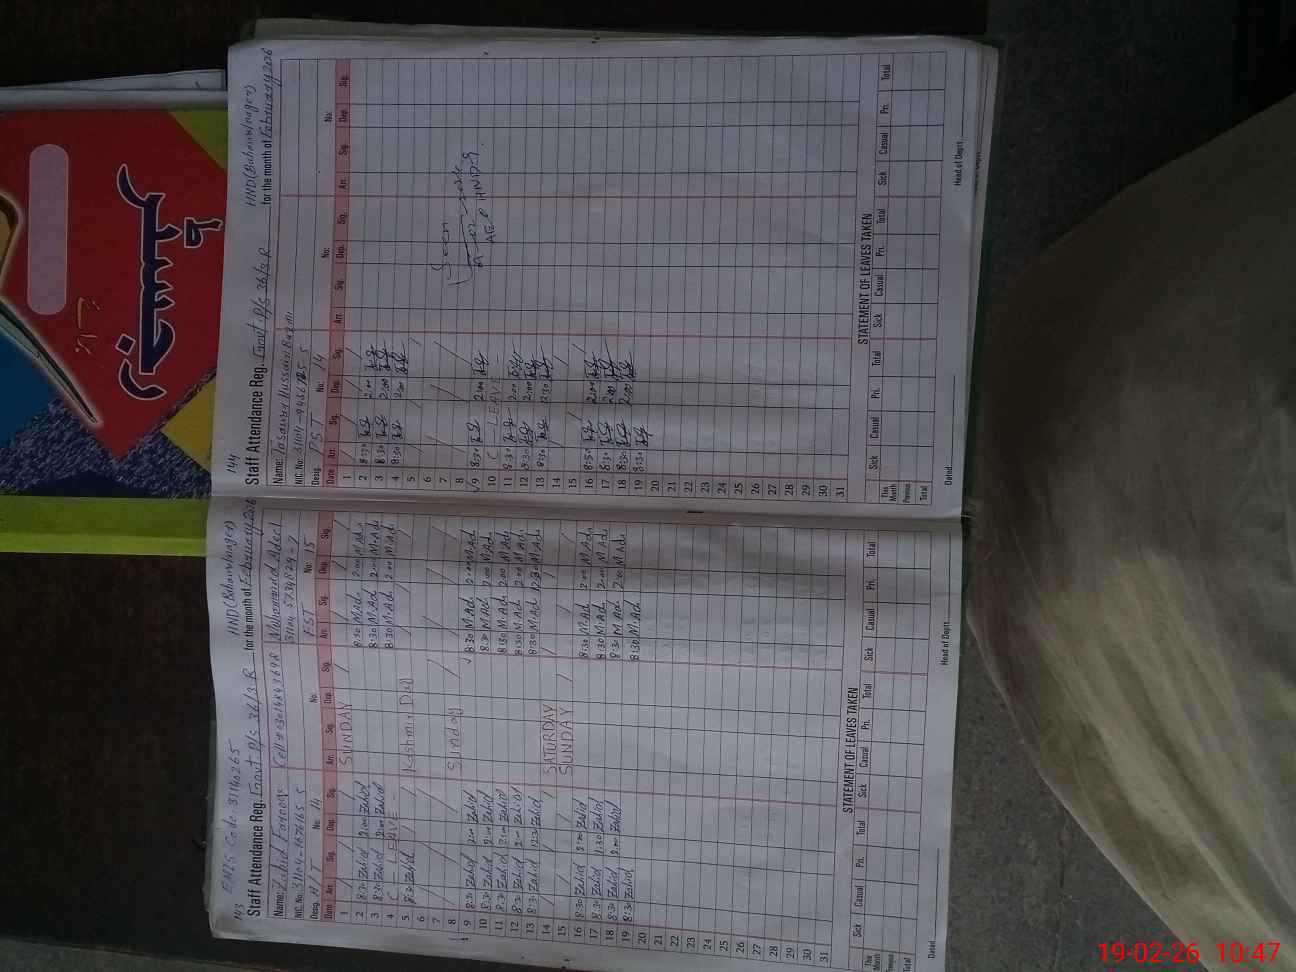 رجسٹر
143 EMIS Code: 31140265 HND (Bahawalnagar)
Staff Attendance Reg. Govt. P/S 36/3.R for the month of February 2026
Name: Zahid Farooq Cell # Muhammad Adeel
NIC. No: 31104
Desig. H/T No: 14 No: PST No: 15
Date Arr. Sig. Dep. Sig. Arr. Sig. Dep. Sig. Arr. Sig. Dep. Sig.
1 SUNDAY
2 8:30 Zahid 2:00 Zahid 8:30 M.Ad. 2:00 M.Ad.
3 8:30 Zahid 2:00 Zahid 8:30 M.Ad. 2:00 M.Ad.
4 C - LEAVE - 8:30 M.Ad. 2:00 M.Ad.
5 8:30 Zahid Kashmir Day
6
7
8 Sunday
9 8:30 Zahid 2:00 Zahid 8:30 M.Ad. 2:00 M.Ad.
10 8:30 Zahid 2:00 Zahid 8:30 M.Ad. 2:00 M.Ad.
11 8:30 Zahid 2:00 Zahid 8:30 M.Ad. 2:00 M.Ad.
12 8:30 Zahid 2:00 Zahid 8:30 M.Ad. 2:00 M.Ad.
13 8:30 Zahid 12:30 Zahid 8:30 M.Ad. 12:30 M.Ad.
14 SATURDAY
15 SUNDAY
16 8:30 Zahid 2:00 Zahid 8:30 M.Ad. 2:00 M.Ad.
17 8:30 Zahid 1:30 Zahid 8:30 M.Ad. 2:00 M.Ad.
18 8:30 Zahid 2:00 Zahid 8:30 M.Ad. 2:00 M.Ad.
19 8:30 Zahid 8:30 M.Ad.
20
21
22
23
24
25
26
27
28
29
30
31
STATEMENT OF LEAVES TAKEN
Sick Casual Pri. Total Sick Casual Pri. Total Sick Casual Pri. Total
This Month
Previous
Total
Dated Head of Deptt.
144 HND (Bahawalnagar)
Staff Attendance Reg. Govt. P/S 36/3.R for the month of February 2026
Name: Hussain
NIC. No: 31104
Desig. PST No: 14 No: No:
Date Arr. Sig. Dep. Sig. Arr. Sig. Dep. Sig. Arr. Sig. Dep. Sig.
1
2 8:30 2:00
3 8:30 2:00
4 8:30 2:00
5
6
7 Seen
8
9 8:30 2:00
10 C - LEAVE - HND-S
11 8:30 2:00
12 8:30 2:00
13 8:30 12:30
14
15
16 8:30 2:00
17 8:30 2:00
18 8:30 2:00
19 8:30
20
21
22
23
24
25
26
27
28
29
30
31
STATEMENT OF LEAVES TAKEN
Sick Casual Pri. Total Sick Casual Pri. Total Sick Casual Pri. Total
This Month
Previous
Total
Dated Head of Deptt.
19-02-26 10:47